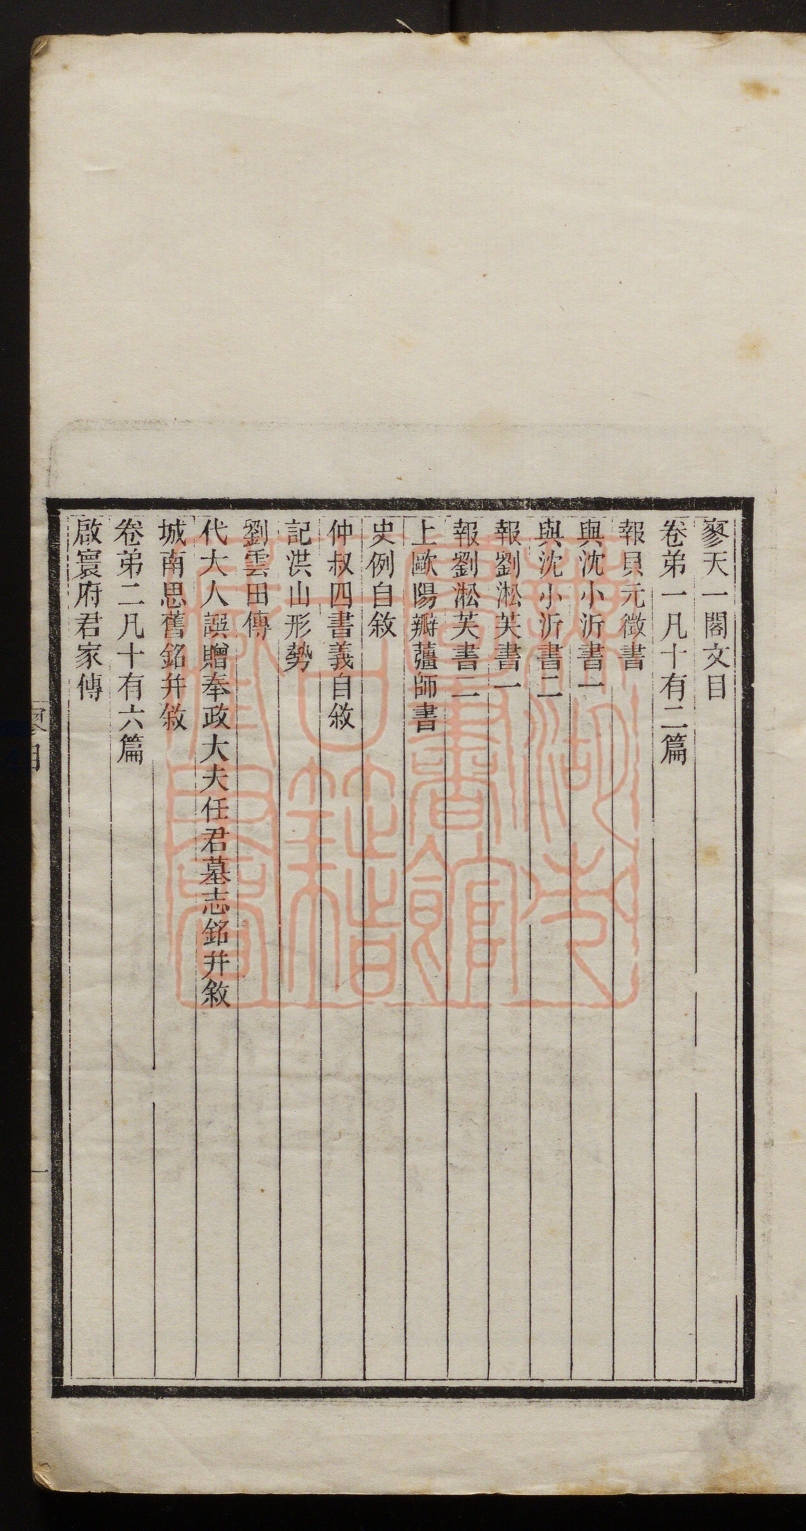 寥天一閣文目
卷弟一凡十有二篇
報貝元徵書
與沈小沂書一
與沈小沂書二
報劉淞芙書一
報劉淞芙書二
上歐陽瓣薑師書
史例自敘
仲叔四書義自敘
記洪山形勢
劉雲田傳
代大人譔贈奉政大夫任君墓志銘并敘
城南思舊銘并敘
卷弟二凡十有六篇
啟寰府君家傳
蕪湖市
圖書館
古籍
藏書